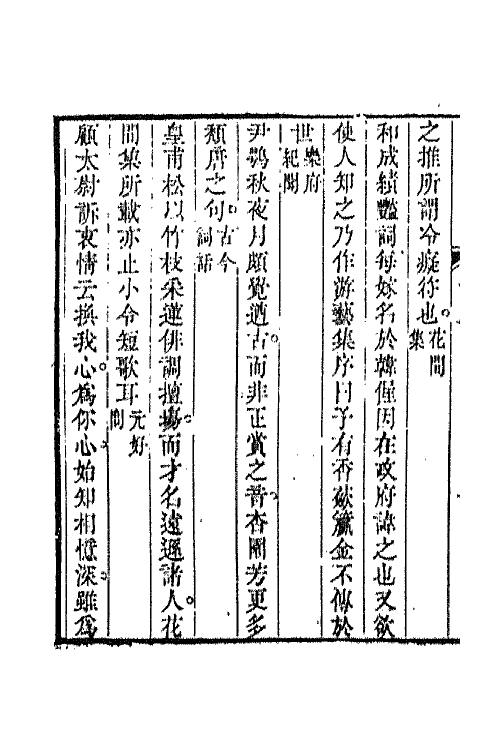 之推所謂令癡符也。花間集
和成績豔詞每嫁名於韓偓因在政府諱之也又欲
使人知之乃作游藝集序曰予有香奩籯金不傳於
世樂府紀聞
尹鶚秋夜月頗覺遒古。而非正賞之音。杏園芳更多
類唐之句。古今詞話
皇甫松以竹枝采蓮俳調擅塲。而才名遠遜諸人。花
間集所載亦止小令短歌耳。元好問
顧太尉訴衷情云換我心。爲你心。始知相憶深。雖爲